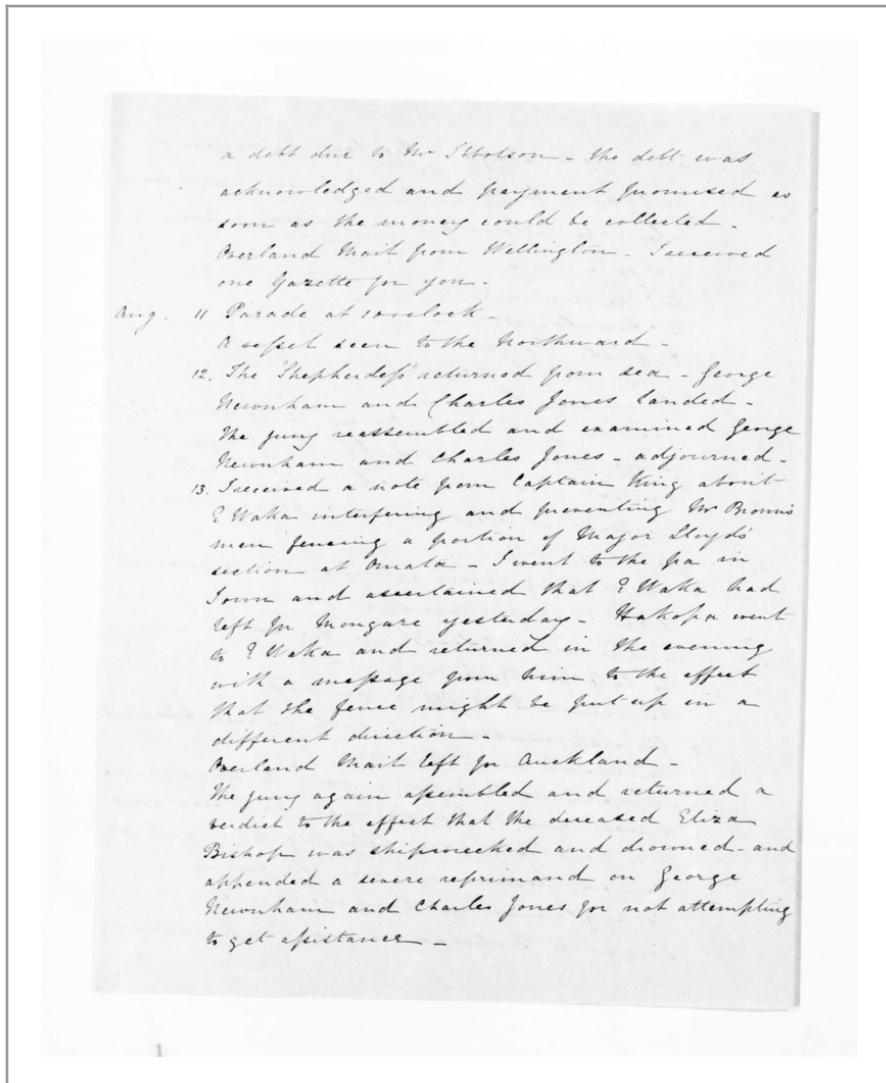 a debt due to Mr Ibbotson - the debt was
acknowledged and payment promised as
soon as the money could be collected -
Overland Mail from Wellington - I received
one Gazette for you -
Aug. 11 Parade at 10 o'clock -
A vessel seen to the Northward -
12. The 'Shepherdess' returned from sea - George
Newnham and Charles Jones landed -
The jury reassembled and examined George
Newnham and Charles Jones - adjourned -
13. I received a note from Captain King about
E Waka interfering and preventing Mr Brown's
men fencing a portion of Major Lloyds'
section at Omata - I went to the pa in
Town and ascertained that E Waka had
left for Mongare yesterday - Hakopa went
to E Waka and returned in the evening
with a message from him to the effect
that the fence might be put up in a
different direction -
Overland Mail left for Auckland -
The jury again assembled and returned a
verdict to the effect that the deceased Eliza
Bishop was shipwrecked and drowned - and
appended a severe reprimand on George
Newnham and Charles Jones for not attempting
to get assistance -